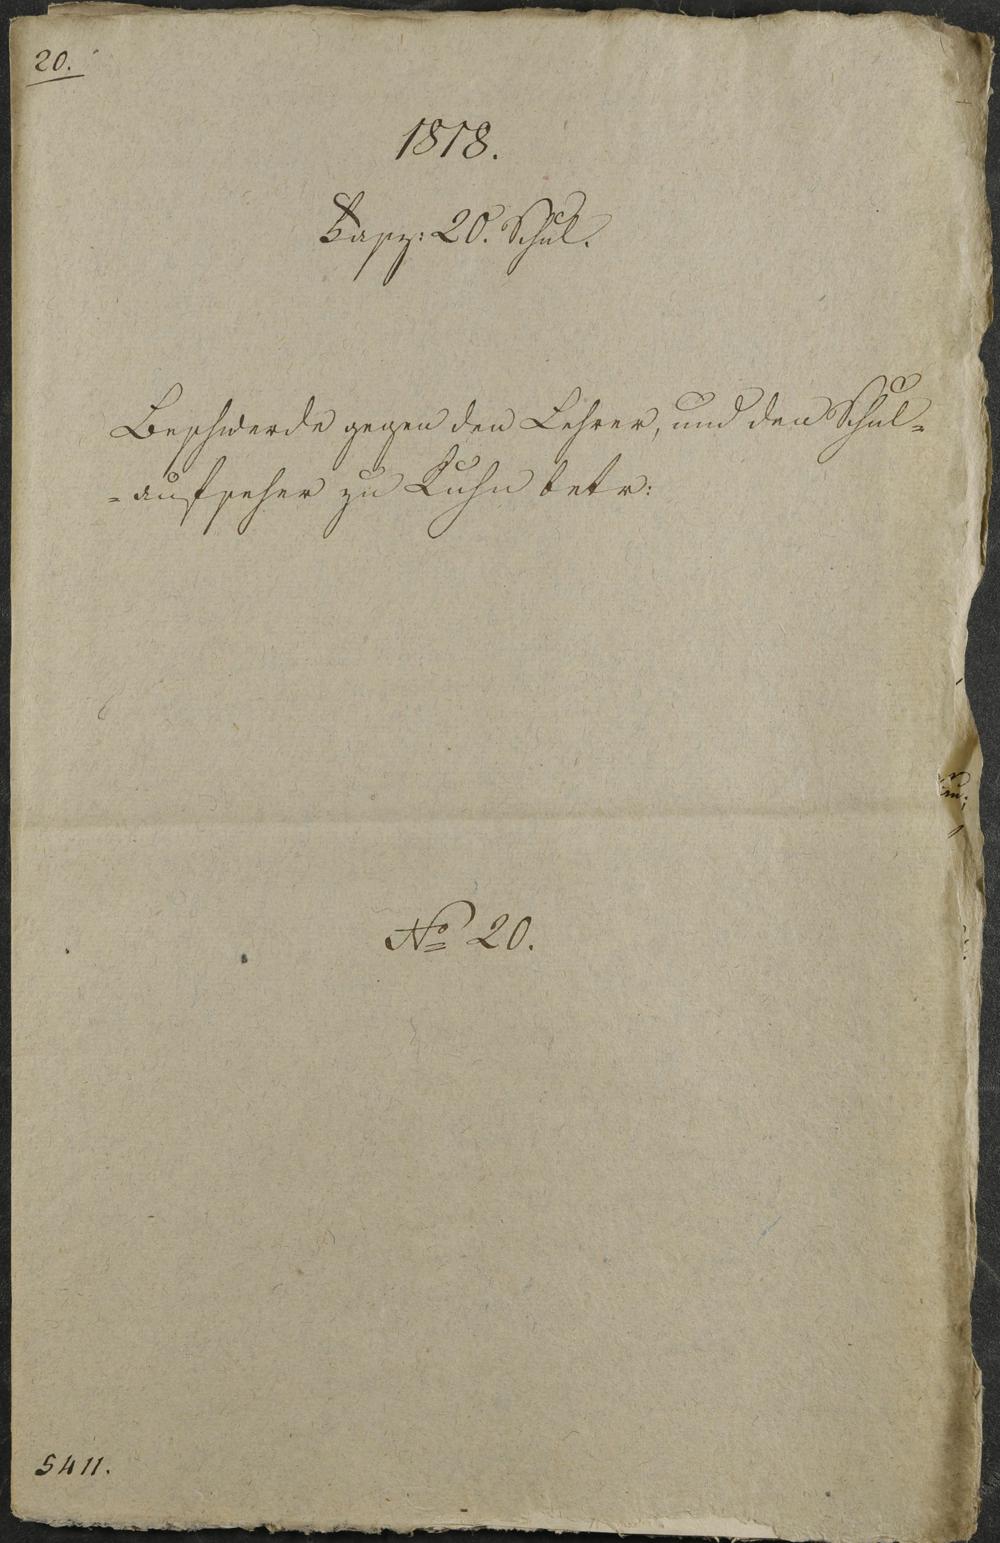 20.
1818.
Fasz: 20. Schul.
Beschwerde gegen den Lehrer, und den Schul=
=aufseher zu Kuhn betr:
No 20.
5411.